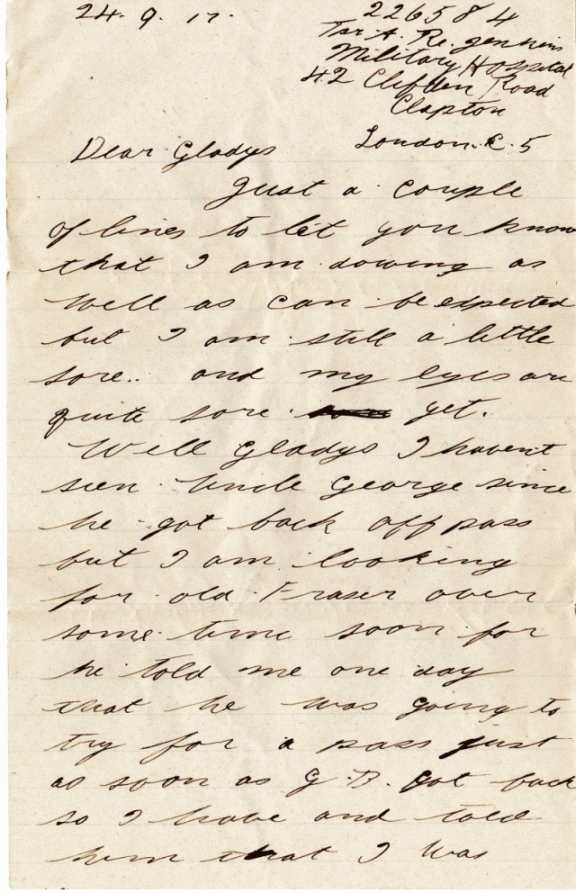 24. 9. 17.
226584
Tpr A. Re. Jenkins
Military Hospital
42 Clifden Road
Clapton
London. E. 5
Dear Gladys
Just a couple
of lines to let you know
that I am dowing as
well as can be expected
but I am still a little
sore.. and my eyes are
quite sore yet.
Well Gladys I havent
seen Uncle George since
he got back off pass
but I am looking
for old Fraser over
some time soon for
he told me one day
that he was going to
try for a pass just
as soon as G.B. got back
so I have and told
him that I was